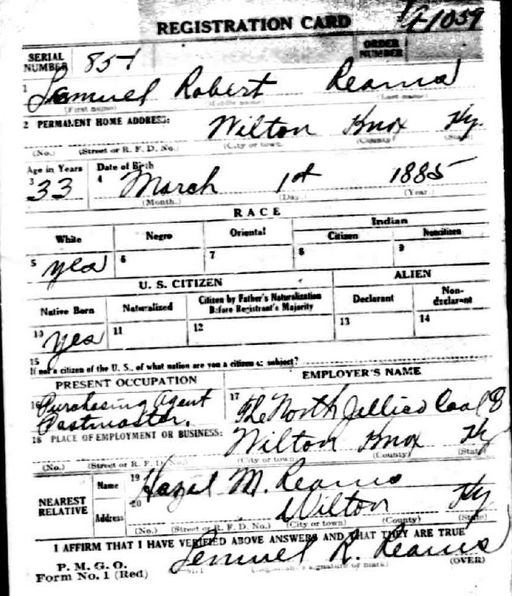 REGISTRATION CARD
SERIAL NUMBER 851 ORDER NUMBER 1059
1 Lemuel Robert Reams
(First name) (Middle name) (Last name)
2 PERMANENT HOME ADDRESS: Wilton Knox Ky.
(No.) (Street or R. F. D. No.) (City or town) (County) (State)
Age in Years Date of Birth
3 33 4 March 1st 1885
(Month.) (Day.) (Year.)
RACE
White Negro Oriental Indian
Citizen Noncitizen
5 yes 6 7 8 9
U. S. CITIZEN ALIEN
Native Born Naturalized Citizen by Father's Naturalization Before Registrant's Majority Declarant Non-declarant
10 yes 11 12 13 14
15 If not a citizen of the U. S., of what nation are you a citizen or subject?
PRESENT OCCUPATION EMPLOYER'S NAME
16 Purchasing Agent Postmaster. 17 The North Jellico Coal
18 PLACE OF EMPLOYMENT OR BUSINESS: Wilton Knox Ky
(No.) (Street or R. F. D. No.) (City or town) (County) (State)
NEAREST RELATIVE Name 19 Hazel M. Reams
Address 20 Wilton Ky
(No.) (Street or R. F. D. No.) (City or town) (County) (State)
I AFFIRM THAT I HAVE VERIFIED ABOVE ANSWERS AND THAT THEY ARE TRUE
P. M. G. O.
Form No. 1 (Red) Lemuel R. Reams
(Registrant's signature or mark) (OVER)